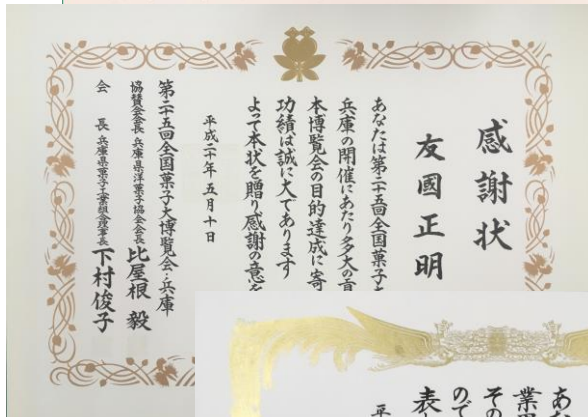 感謝状
友國正明
あなたは第二十五回全国菓子
兵庫の開催にあたり多大の
本博覧会の目的達成に寄
功績は誠に大であります
よって本状を贈り感謝の意を
平成二十年五月十日
第二十五回全国菓子大博覧会・兵庫
協賛会会長 兵庫県洋菓子協会会長 比屋根 毅
会 長 兵庫県菓子工業組合理事長 下村俊子
あ
業
その
ので
表
平